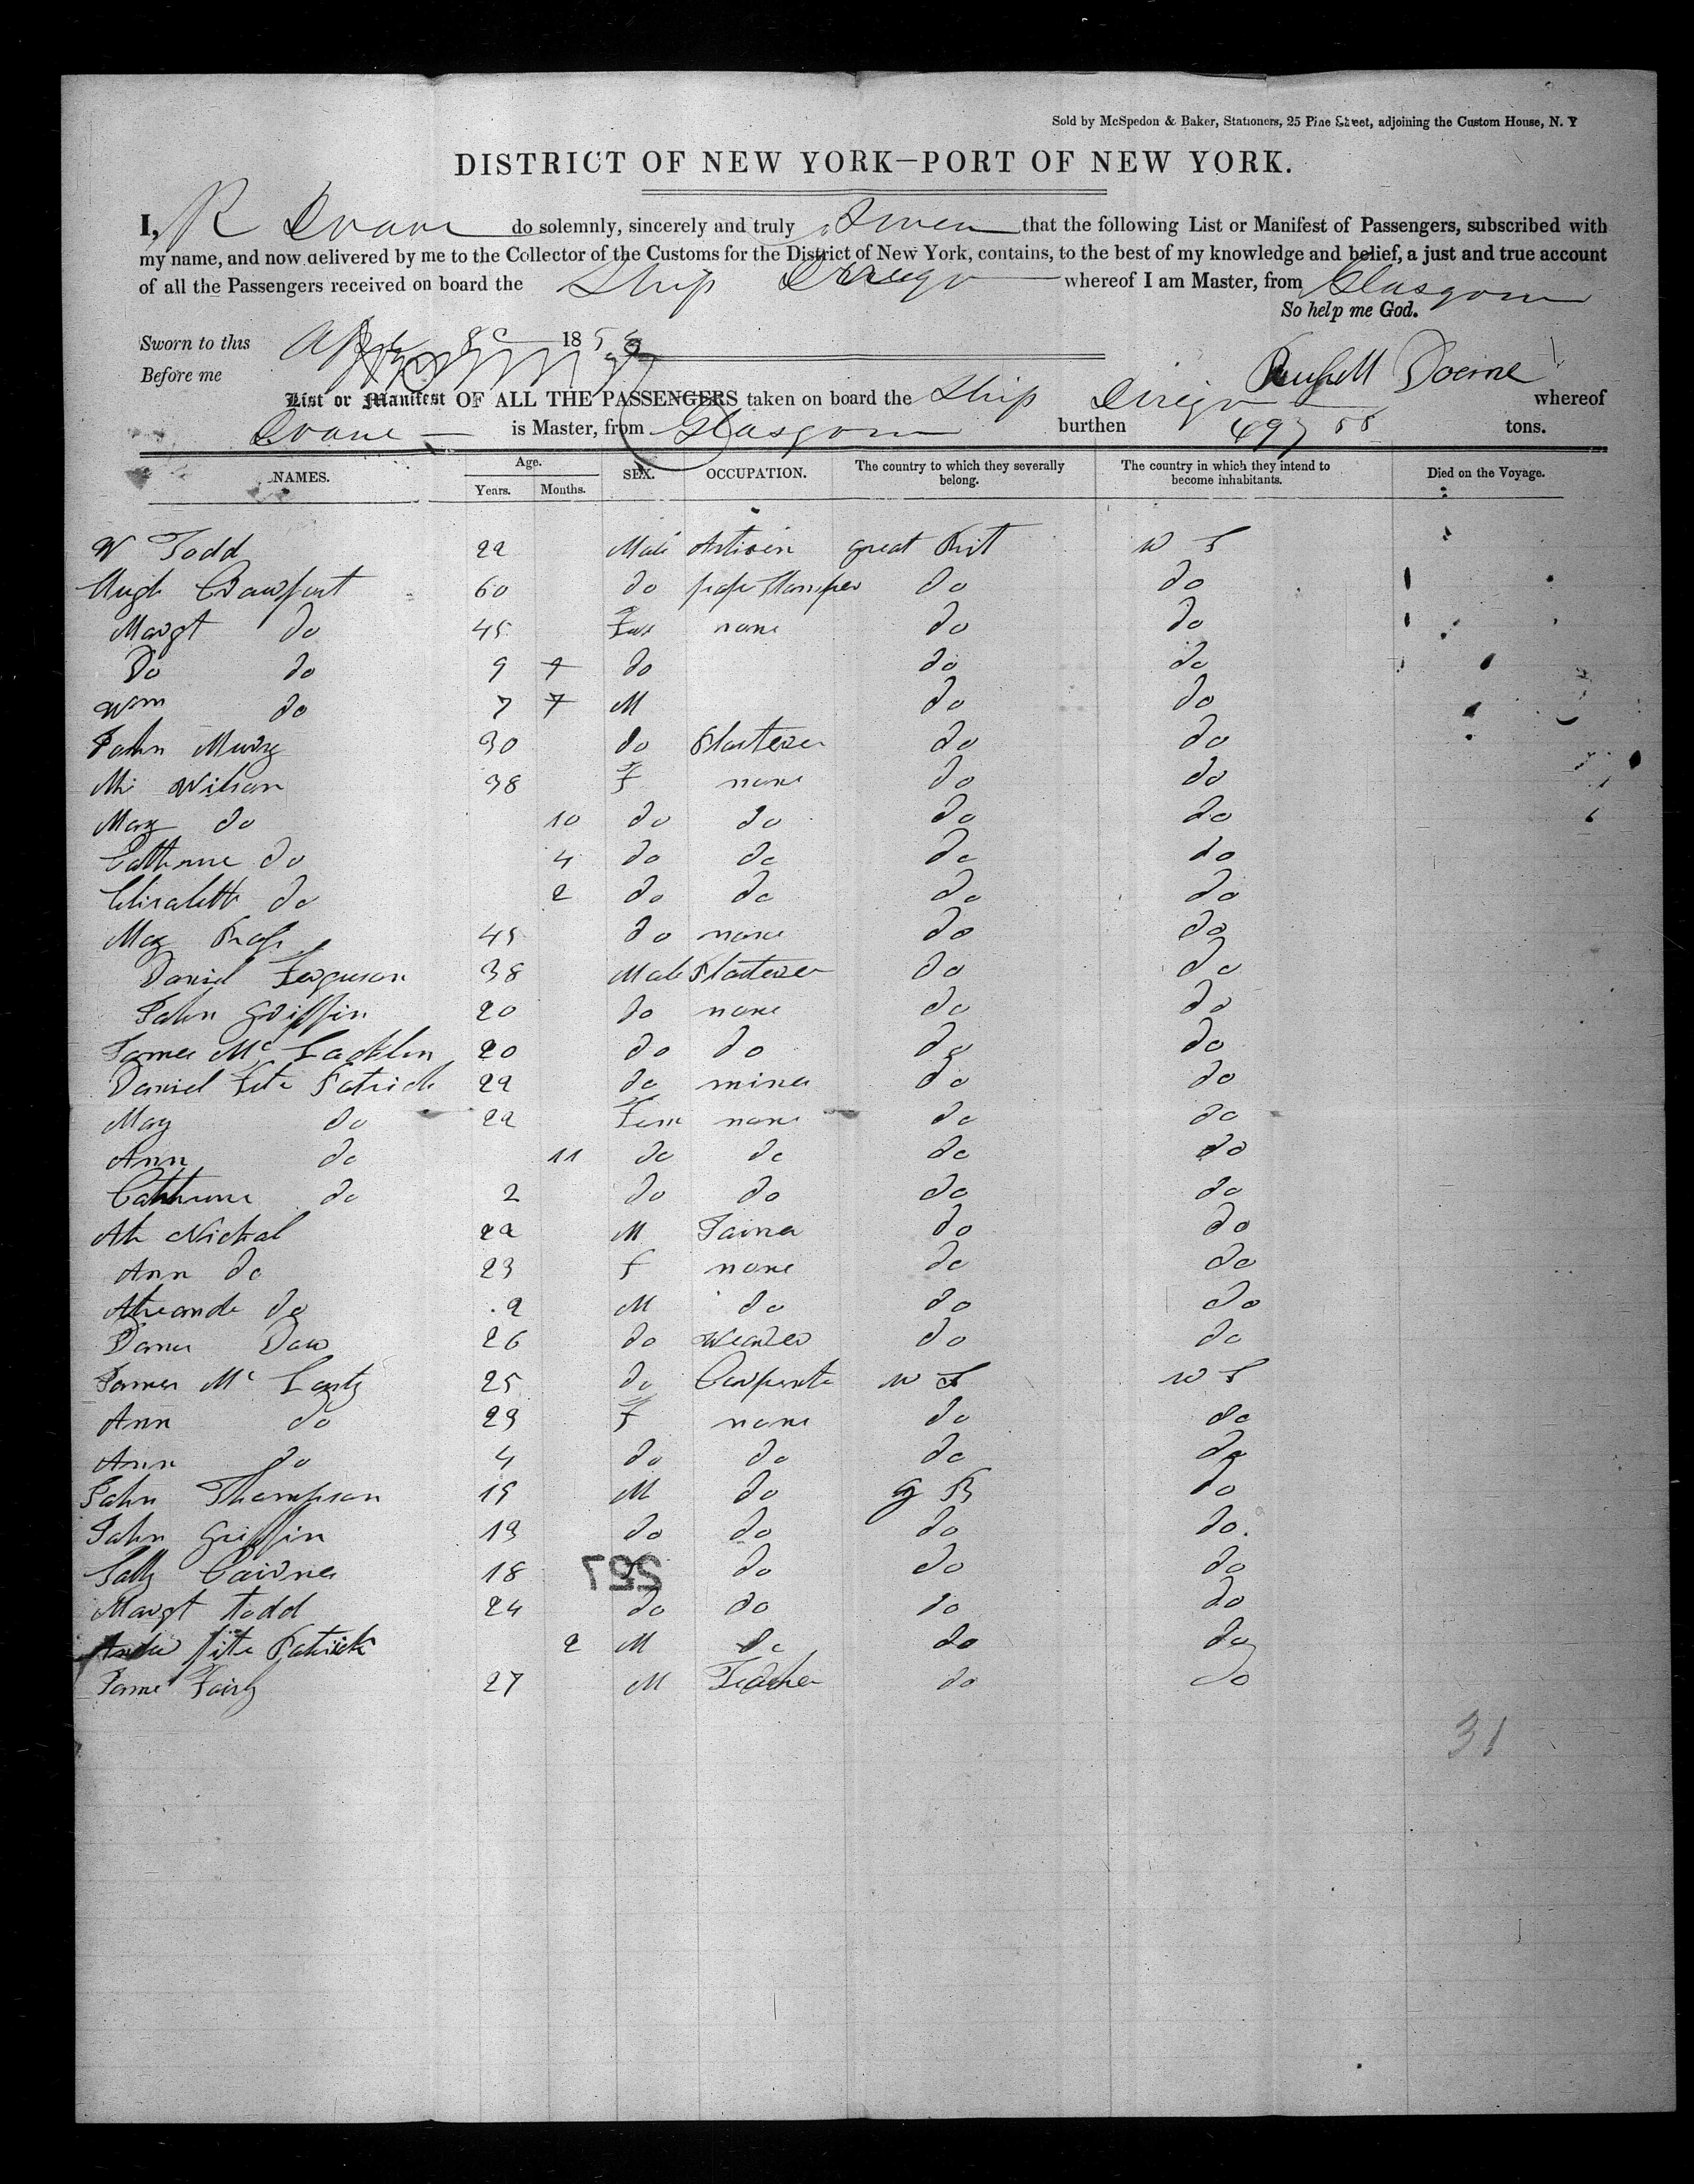 Sold by McSpedon & Baker, Stationers, 25 Pine Street, adjoining the Custom House, N. Y
DISTRICT OF NEW YORK—PORT OF NEW YORK.
I, R Doane do solemnly, sincerely and truly swear that the following List or Manifest of Passengers, subscribed with
my name, and now delivered by me to the Collector of the Customs for the District of New York, contains, to the best of my knowledge and belief, a just and true account
of all the Passengers received on board the Ship Dirigo whereof I am Master, from Glasgow
So help me God.
Sworn to this 1850
Before me
Russell Doane
List or Manifest OF ALL THE PASSENGERS taken on board the Ship Dirigo whereof
Doane is Master, from Glasgow burthen 497 58 tons.
NAMES. Age. Years. Months. SEX. OCCUPATION. The country to which they severally belong. The country in which they intend to become inhabitants. Died on the Voyage.
W Todd 22 Male Artisen great Brit W S
Hugh 60 do do do
Margt do 45 Fem none do do
Do do 9 7 do do do
Wm do 7 7 M do do
John 30 do Plasterer do do
Wilson 38 F none do do
Mary do 10 do do do do
Catherine do 4 do do do do
Elisabeth do 2 do do do do
Mary 45 do none do do
Daniel Ferguson 38 Male Plasterer do do
John Griffin 20 do none do do
James Mc Lacklin 20 do do do do
Daniel Fitz Patrick 22 do miner do do
Mary do 22 Fem none do do
Ann do 11 do do do do
Catherine do 2 do do do do
Nickal 22 M do do
Ann do 23 F none do do
do 2 M do do do
26 do Weaver do do
James Mc 25 do Carpenter W S W S
Ann do 23 F none do do
Ann do 4 do do do do
John Thompson 19 M do G B do
John Griffin 19 do do do do
18 do do do
Margt Todd 24 do do do do
Fitz Patrick 2 M do do do
27 M do do
257
31